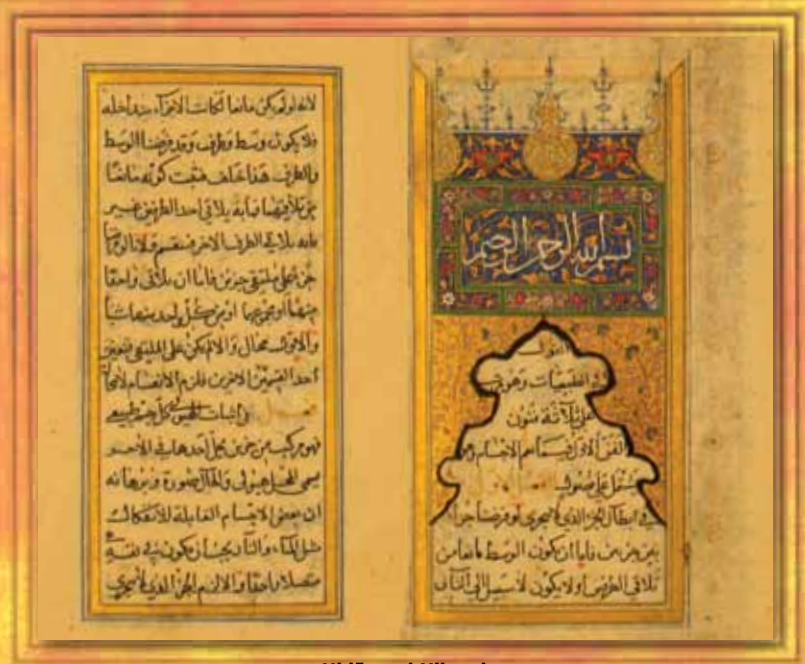 بسم الله الرحمن الرحيم
القول
في الطبيعيات وهو
على ثلاثة فنون
الفن الاول فيما يعم الاجسام وهو
مشتمل على فصول
في ابطال الجزء الذي لا يتجزى لو فرضنا جزأ
بين جزءين فاما ان يكون الوسط مانعا من
تلاقي الطرفين أو لا يكون لا سبيل الى الثاني
لانه لو لم يكن مانعا لكانت الاجزاء متداخلة
فلا يكون وسط وطرف وقد فرضنا الوسط
والطرف هذا خلف فثبت كونه مانعا
من تلاقيهما فما به يلاقي احد الطرفين غير
ما به يلاقي الطرف الاخر فينقسم ولانا لو فرضنا
جزء على ملتقى جزءين فاما ان يلاقي واحدا
منهما او مجموعهما او من كل واحد منهما شيئا
والاول محال والا لم يكن على الملتقى فتعين
احد القسمين الاخرين فلزم الانقسام لا محالة
في اثبات الهيولى كل جسم طبيعي
فهو مركب من جزءين يحل أحدهما في الآخر
يسمى المحل هيولى والحال صورة وبرهانه
ان بعض الاجسام القابلة للانفكاك
مثل الماء والنار يجب ان يكون في نفسه
متصلا واحدا والا لزم الجزء الذي لا يتجزى